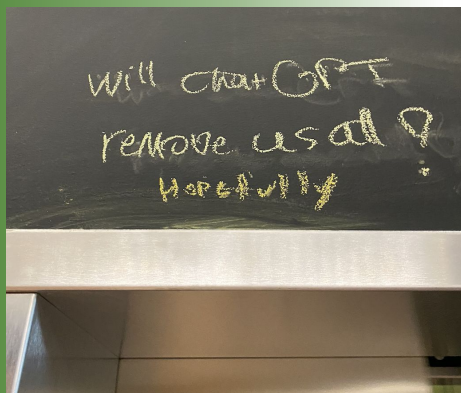 will chatGPT
remove us all?
Hopefully